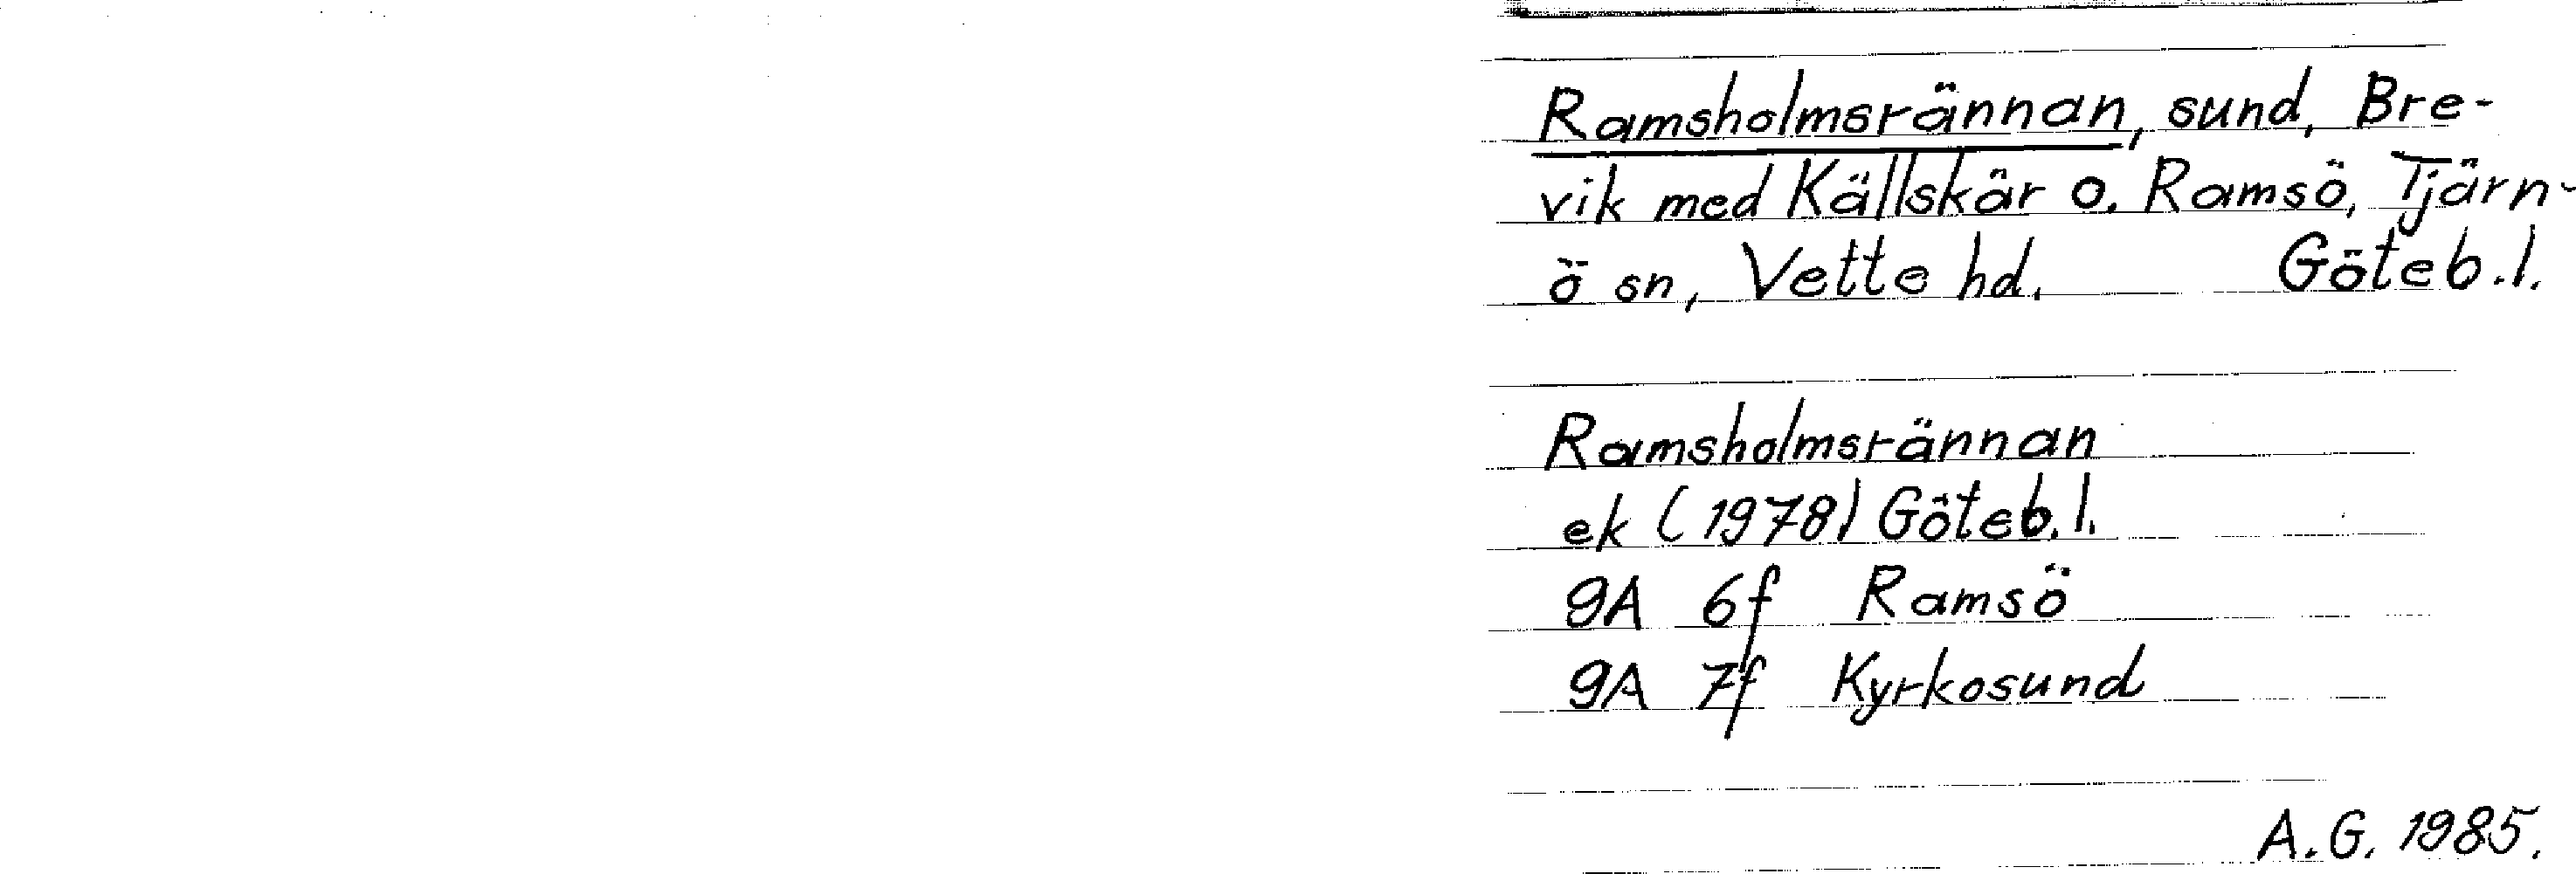 Ramsholmsrännan, sund, Bre-
vik med Källskär o. Ramsö, Tjärn-
ö sn, Vette hd. Göteb.l.
Ramsholmsrännan
ek (1978) Göteb.l.
9A 6f Ramsö
9A 7f Kyrkosund
A.G. 1985.